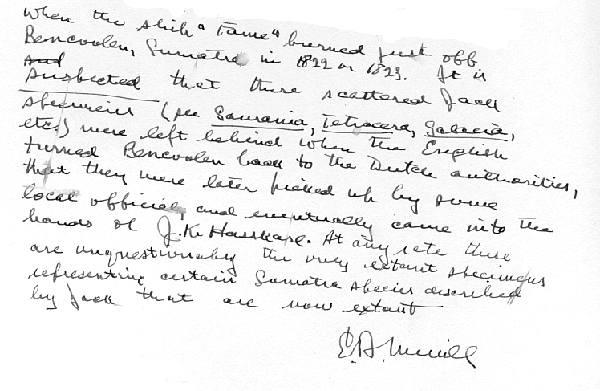 When the ship "Fame" burned just off
Bencoolen, Sumatra in 1822 or 1823. It is
and
suspected that these scattered Jack
specimens (see Saurania, Tetracera, Salacia,
etc.) were left behind when the English
turned Bencoolen back to the Dutch authorities,
that they were later picked up by some
local official, and eventually came into the
hands of J.K. Hasskarl. At any rate these
are unquestionably the very extant specimens
representing certain Sumatra species described
by Jack that are now extant
E.D. Merrill